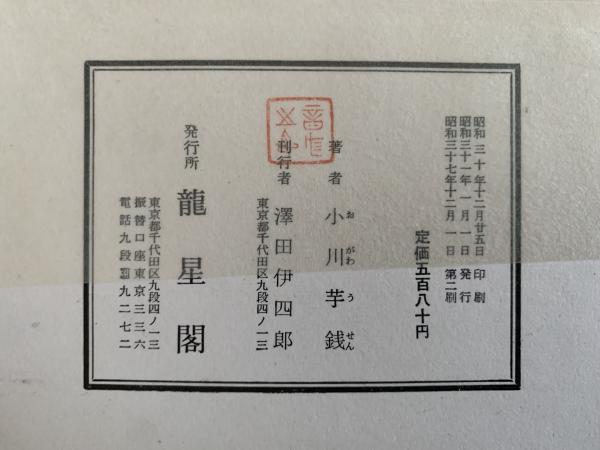 昭和三十年十二月廿五日 印刷
昭和三十一年一月一日 発行
昭和三十七年十二月一日 第二刷
定価五百八十円
著者 小川芋銭
お がわ う せん
刊行者 澤田伊四郎
東京都千代田区九段四ノ一三
発行所 龍星閣
東京都千代田区九段四ノ一三
振替口座東京三三六
電話九段九二七二